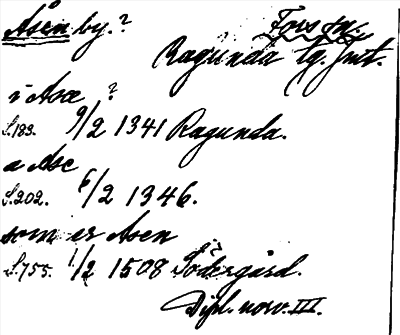 Åsen by. ?
Fors sn.
Ragunda tg. Jmt.
i Asæ ?
S.183. 9/2 1341 Ragunda.
a Ase
S.202. 6/2 1346.
som er Asen
S.755. 1/2 1508 Södergård.
Dipl. norv. III.